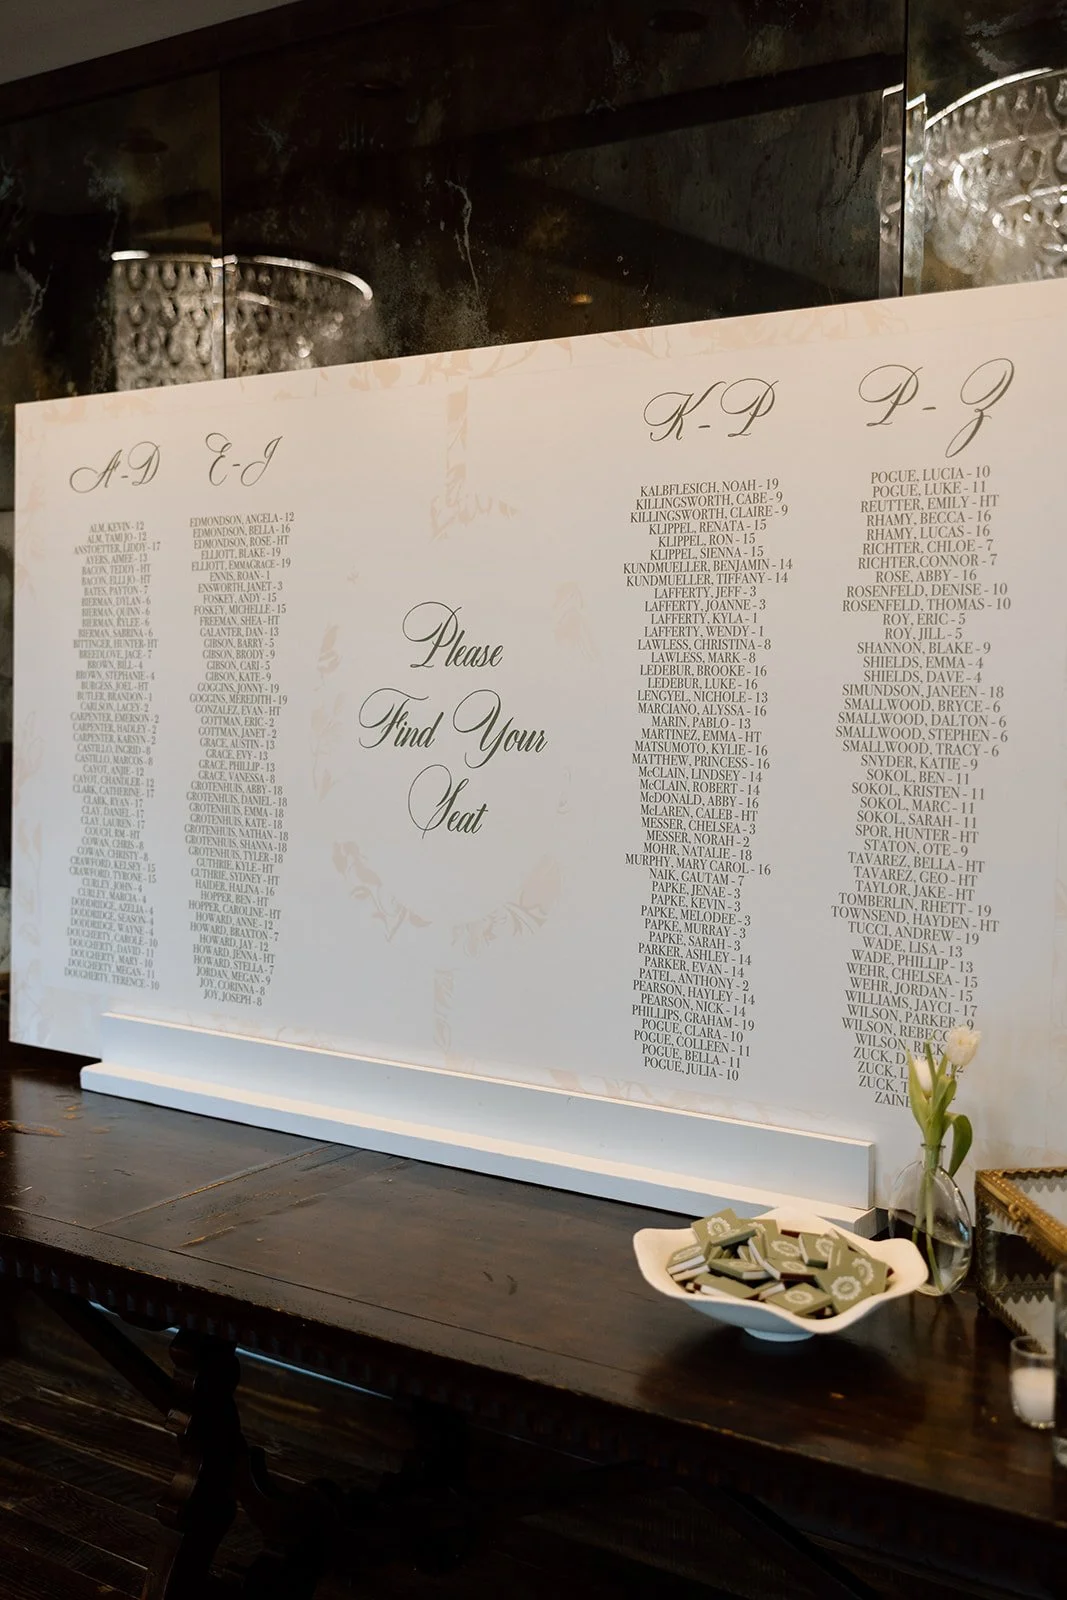 A-D
ALM, KEVIN - 12
ALM, TAMI JO - 12
ANSTOETTER, LIDDY - 17
AYERS, AIMEE - 13
BACON, TEDDY - HT
BACON, ELLI JO - HT
BATES, PAYTON - 7
BIERMAN, DYLAN - 6
BIERMAN, QUINN - 6
BIERMAN, RYLEE - 6
BIERMAN, SABRINA - 6
BITTINGER, HUNTER - HT
BREEDLOVE, JACE - 7
BROWN, BILL - 4
BROWN, STEPHANIE - 4
BURGESS, JOEL - HT
BUTLER, BRANDON - 1
CARLSON, LACEY - 2
CARPENTER, EMERSON - 2
CARPENTER, HADLEY - 2
CARPENTER, KARSYN - 2
CASTILLO, INGRID - 8
CASTILLO, MARCOS - 8
CAYOT, ANJIE - 12
CAYOT, CHANDLER - 12
CLARK, CATHERINE - 17
CLARK, RYAN - 17
CLAY, DANIEL - 17
CLAY, LAUREN - 17
COUCH, RM - HT
COWAN, CHRIS - 8
COWAN, CHRISTY - 8
CRAWFORD, KELSEY - 15
CRAWFORD, TYRONE - 15
CURLEY, JOHN - 4
CURLEY, MARCIA - 4
DODDRIDGE, AZELIA - 4
DODDRIDGE, SEASON - 4
DODDRIDGE, WAYNE - 4
DOUGHERTY, CAROLE - 10
DOUGHERTY, DAVID - 11
DOUGHERTY, MARY - 10
DOUGHERTY, MEGAN - 11
DOUGHERTY, TERENCE - 10
E-J
EDMONDSON, ANGELA - 12
EDMONDSON, BELLA - 16
EDMONDSON, ROSE - HT
ELLIOTT, BLAKE - 19
ELLIOTT, EMMAGRACE - 19
ENNIS, ROAN - 1
ENSWORTH, JANET - 3
FOSKEY, ANDY - 15
FOSKEY, MICHELLE - 15
FREEMAN, SHEA - HT
GALANTER, DAN - 13
GIBSON, BARRY - 5
GIBSON, BRODY - 9
GIBSON, CARI - 5
GIBSON, KATE - 9
GOGGINS, JONNY - 19
GOGGINS, MEREDITH - 19
GONZALEZ, EVAN - HT
GOTTMAN, ERIC - 2
GOTTMAN, JANET - 2
GRACE, AUSTIN - 13
GRACE, EVY - 13
GRACE, PHILLIP - 13
GRACE, VANESSA - 8
GROTENHUIS, ABBY - 18
GROTENHUIS, DANIEL - 18
GROTENHUIS, EMMA - 18
GROTENHUIS, KATE - 18
GROTENHUIS, NATHAN - 18
GROTENHUIS, SHANNA - 18
GROTENHUIS, TYLER - 18
GUTHRIE, KYLE - HT
GUTHRIE, SYDNEY - HT
HAIDER, HALINA - 16
HOPPER, BEN - HT
HOPPER, CAROLINE - HT
HOWARD, ANNE - 12
HOWARD, BRAXTON - 7
HOWARD, JAY - 12
HOWARD, JENNA - HT
HOWARD, STELLA - 7
JORDAN, MEGAN - 9
JOY, CORINNA - 8
JOY, JOSEPH - 8
Please
Find Your
Seat
K-P
KALBFLESICH, NOAH - 19
KILLINGSWORTH, CABE - 9
KILLINGSWORTH, CLAIRE - 9
KLIPPEL, RENATA - 15
KLIPPEL, RON - 15
KLIPPEL, SIENNA - 15
KUNDMUELLER, BENJAMIN - 14
KUNDMUELLER, TIFFANY - 14
LAFFERTY, JEFF - 3
LAFFERTY, JOANNE - 3
LAFFERTY, KYLA - 1
LAFFERTY, WENDY - 1
LAWLESS, CHRISTINA - 8
LAWLESS, MARK - 8
LEDEBUR, BROOKE - 16
LEDEBUR, LUKE - 16
LENGYEL, NICHOLE - 13
MARCIANO, ALYSSA - 16
MARIN, PABLO - 13
MARTINEZ, EMMA - HT
MATSUMOTO, KYLIE - 16
MATTHEW, PRINCESS - 16
McCLAIN, LINDSEY - 14
McCLAIN, ROBERT - 14
McDONALD, ABBY - 16
McLAREN, CALEB - HT
MESSER, CHELSEA - 3
MESSER, NORAH - 2
MOHR, NATALIE - 18
MURPHY, MARY CAROL - 16
NAIK, GAUTAM - 7
PAPKE, JENAE - 3
PAPKE, KEVIN - 3
PAPKE, MELODEE - 3
PAPKE, MURRAY - 3
PAPKE, SARAH - 3
PARKER, ASHLEY - 14
PARKER, EVAN - 14
PATEL, ANTHONY - 2
PEARSON, HAYLEY - 14
PEARSON, NICK - 14
PHILLIPS, GRAHAM - 19
POGUE, CLARA - 10
POGUE, COLLEEN - 11
POGUE, BELLA - 11
POGUE, JULIA - 10
P-Z
POGUE, LUCIA - 10
POGUE, LUKE - 11
REUTTER, EMILY - HT
RHAMY, BECCA - 16
RHAMY, LUCAS - 16
RICHTER, CHLOE - 7
RICHTER,CONNOR - 7
ROSE, ABBY - 16
ROSENFELD, DENISE - 10
ROSENFELD, THOMAS - 10
ROY, ERIC - 5
ROY, JILL - 5
SHANNON, BLAKE - 9
SHIELDS, EMMA - 4
SHIELDS, DAVE - 4
SIMUNDSON, JANEEN - 18
SMALLWOOD, BRYCE - 6
SMALLWOOD, DALTON - 6
SMALLWOOD, STEPHEN - 6
SMALLWOOD, TRACY - 6
SNYDER, KATIE - 9
SOKOL, BEN - 11
SOKOL, KRISTEN - 11
SOKOL, MARC - 11
SOKOL, SARAH - 11
SPOR, HUNTER - HT
STATON, OTE - 9
TAVAREZ, BELLA - HT
TAVAREZ, GEO - HT
TAYLOR, JAKE - HT
TOMBERLIN, RHETT - 19
TOWNSEND, HAYDEN - HT
TUCCI, ANDREW - 19
WADE, LISA - 13
WADE, PHILLIP - 13
WEHR, CHELSEA - 15
WEHR, JORDAN - 15
WILLIAMS, JAYCI - 17
WILSON, PARKER - 9
WILSON,
WILSON,
ZUCK,
ZUCK,
ZUCK,